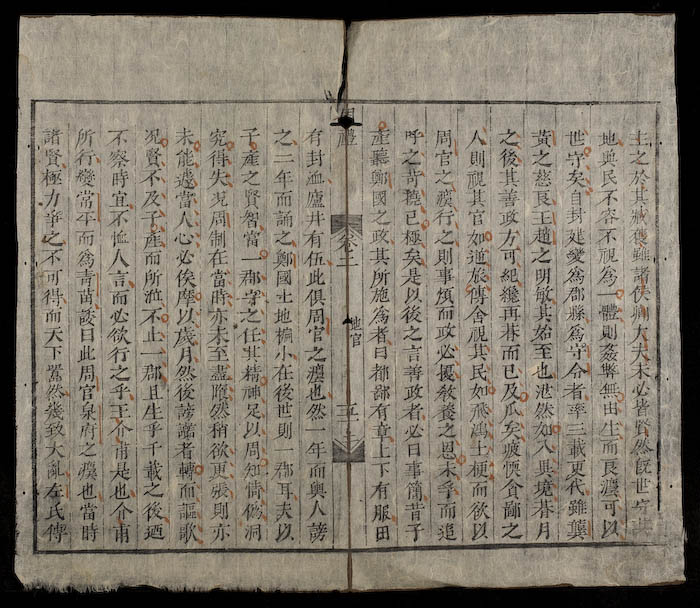 主之於其臧獲雖諸侯卿大夫未必皆賢然旣世守其
地與民不容不視爲一體則姦弊無由生而良灋可以
世守矣自封建變爲郡縣爲守令者率三載更代雖龔
黃之慈良王趙之明敏其始至也茫然如入異境朞月
之後其善政方可紀纔再朞而已及瓜矣疲懦貪鄙之
人則視其官如逆旅傳舍視其民如飛鴻土梗而欲以
周官之灋行之則事煩而政必擾敎養之恩未孚而追
呼之苛嬈已極矣是以後之言善政者必曰事簡昔子
產聽鄭國之政其所施爲者曰都鄙有章上下有服田
周禮 卷二 地官
有封洫廬井有伍此俱周官之灋也然一年而輿人謗
之二年而誦之鄭國土地褊小在後世則一郡耳夫以
子產之賢智當一郡守之任其精神足以周知情僞洞
究得失况周制在當時亦未至盡隳然稍欲更張則亦
未能遽當人心必俟摩以歲月然後謗讟者轉而謳歌
况賢不及子產而所涖不止一郡且生乎千載之後迺
不察時宜不恤人言而必欲行之乎王介甫是也介甫
所行變常平而爲靑苗諉曰此周官泉府之灋也當時
諸賢極力爭之不可得而天下嚚然幾致大亂左氏傳